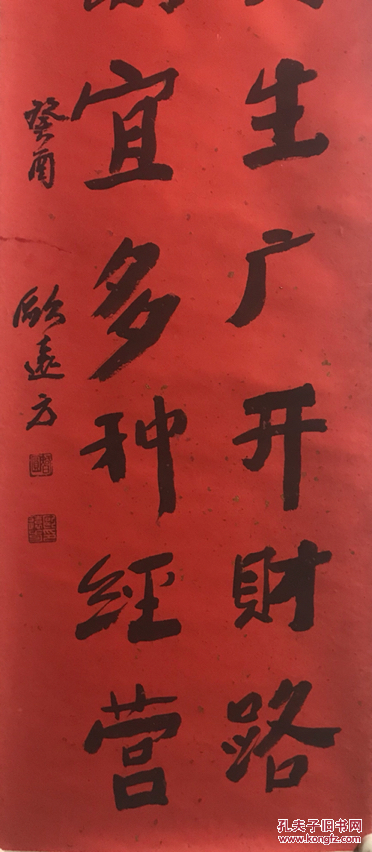 生广开財路
宜多种经营
癸酉
欧远方
孔夫子旧书网
www.kongfz.com